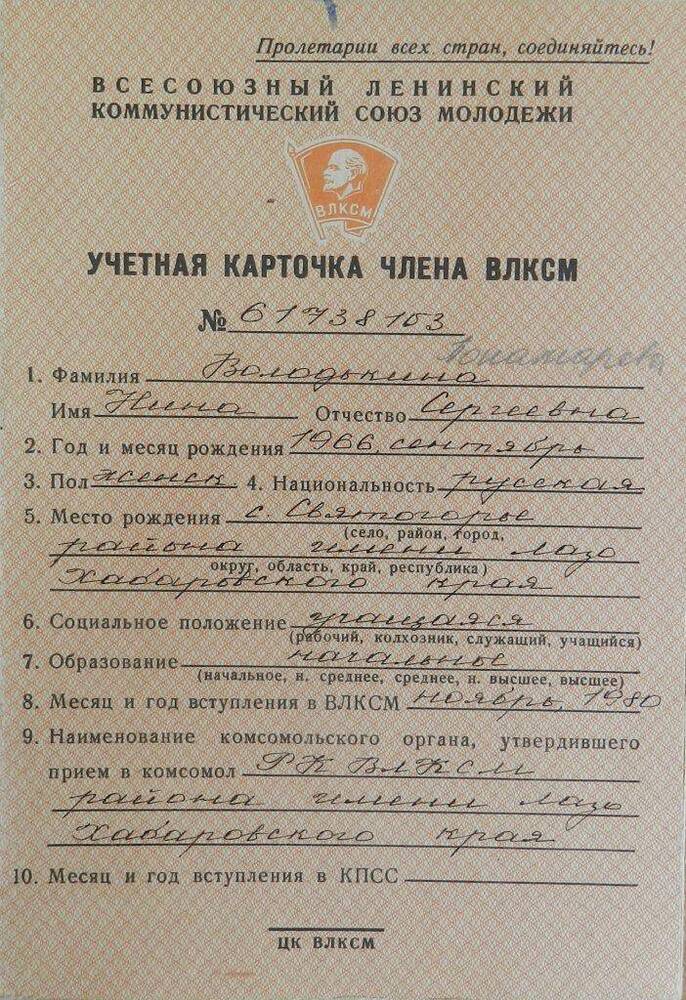 Пролетарии всех стран, соединяйтесь!
ВСЕСОЮЗНЫЙ ЛЕНИНСКИЙ
КОММУНИСТИЧЕСКИЙ СОЮЗ МОЛОДЕЖИ
ВЛКСМ
УЧЕТНАЯ КАРТОЧКА ЧЛЕНА ВЛКСМ
№ 61738103
Понамарева
1. Фамилия Володькина
Имя Нина Отчество Сергеевна
2. Год и месяц рождения 1966, сентябрь
3. Пол женск 4. Национальность русская
5. Место рождения с. Святогорье
(село, район, город,
района имени Лазо
округ, область, край, республика)
Хабаровского края
6. Социальное положение учащаяся
(рабочий, колхозник, служащий, учащийся)
7. Образование начальное
(начальное, н. среднее, среднее, н. высшее, высшее)
8. Месяц и год вступления в ВЛКСМ ноябрь, 1980
9. Наименование комсомольского органа, утвердившего
прием в комсомол РК ВЛКСМ
района имени Лазо
Хабаровского края
10. Месяц и год вступления в КПСС
ЦК ВЛКСМ